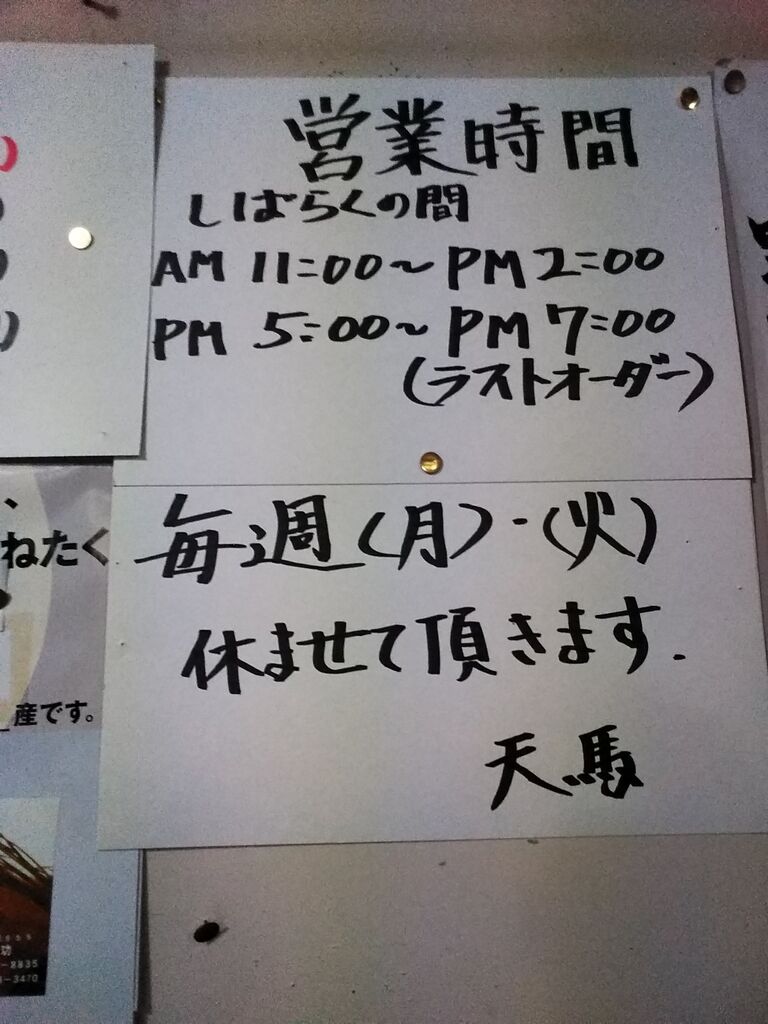 営業時間
しばらくの間
AM 11:00〜PM 2:00
PM 5:00〜PM 7:00
(ラストオーダー)
毎週(月)・(火)
休ませて頂きます.
天馬
ねたく
産です。
功
-8835
-3470